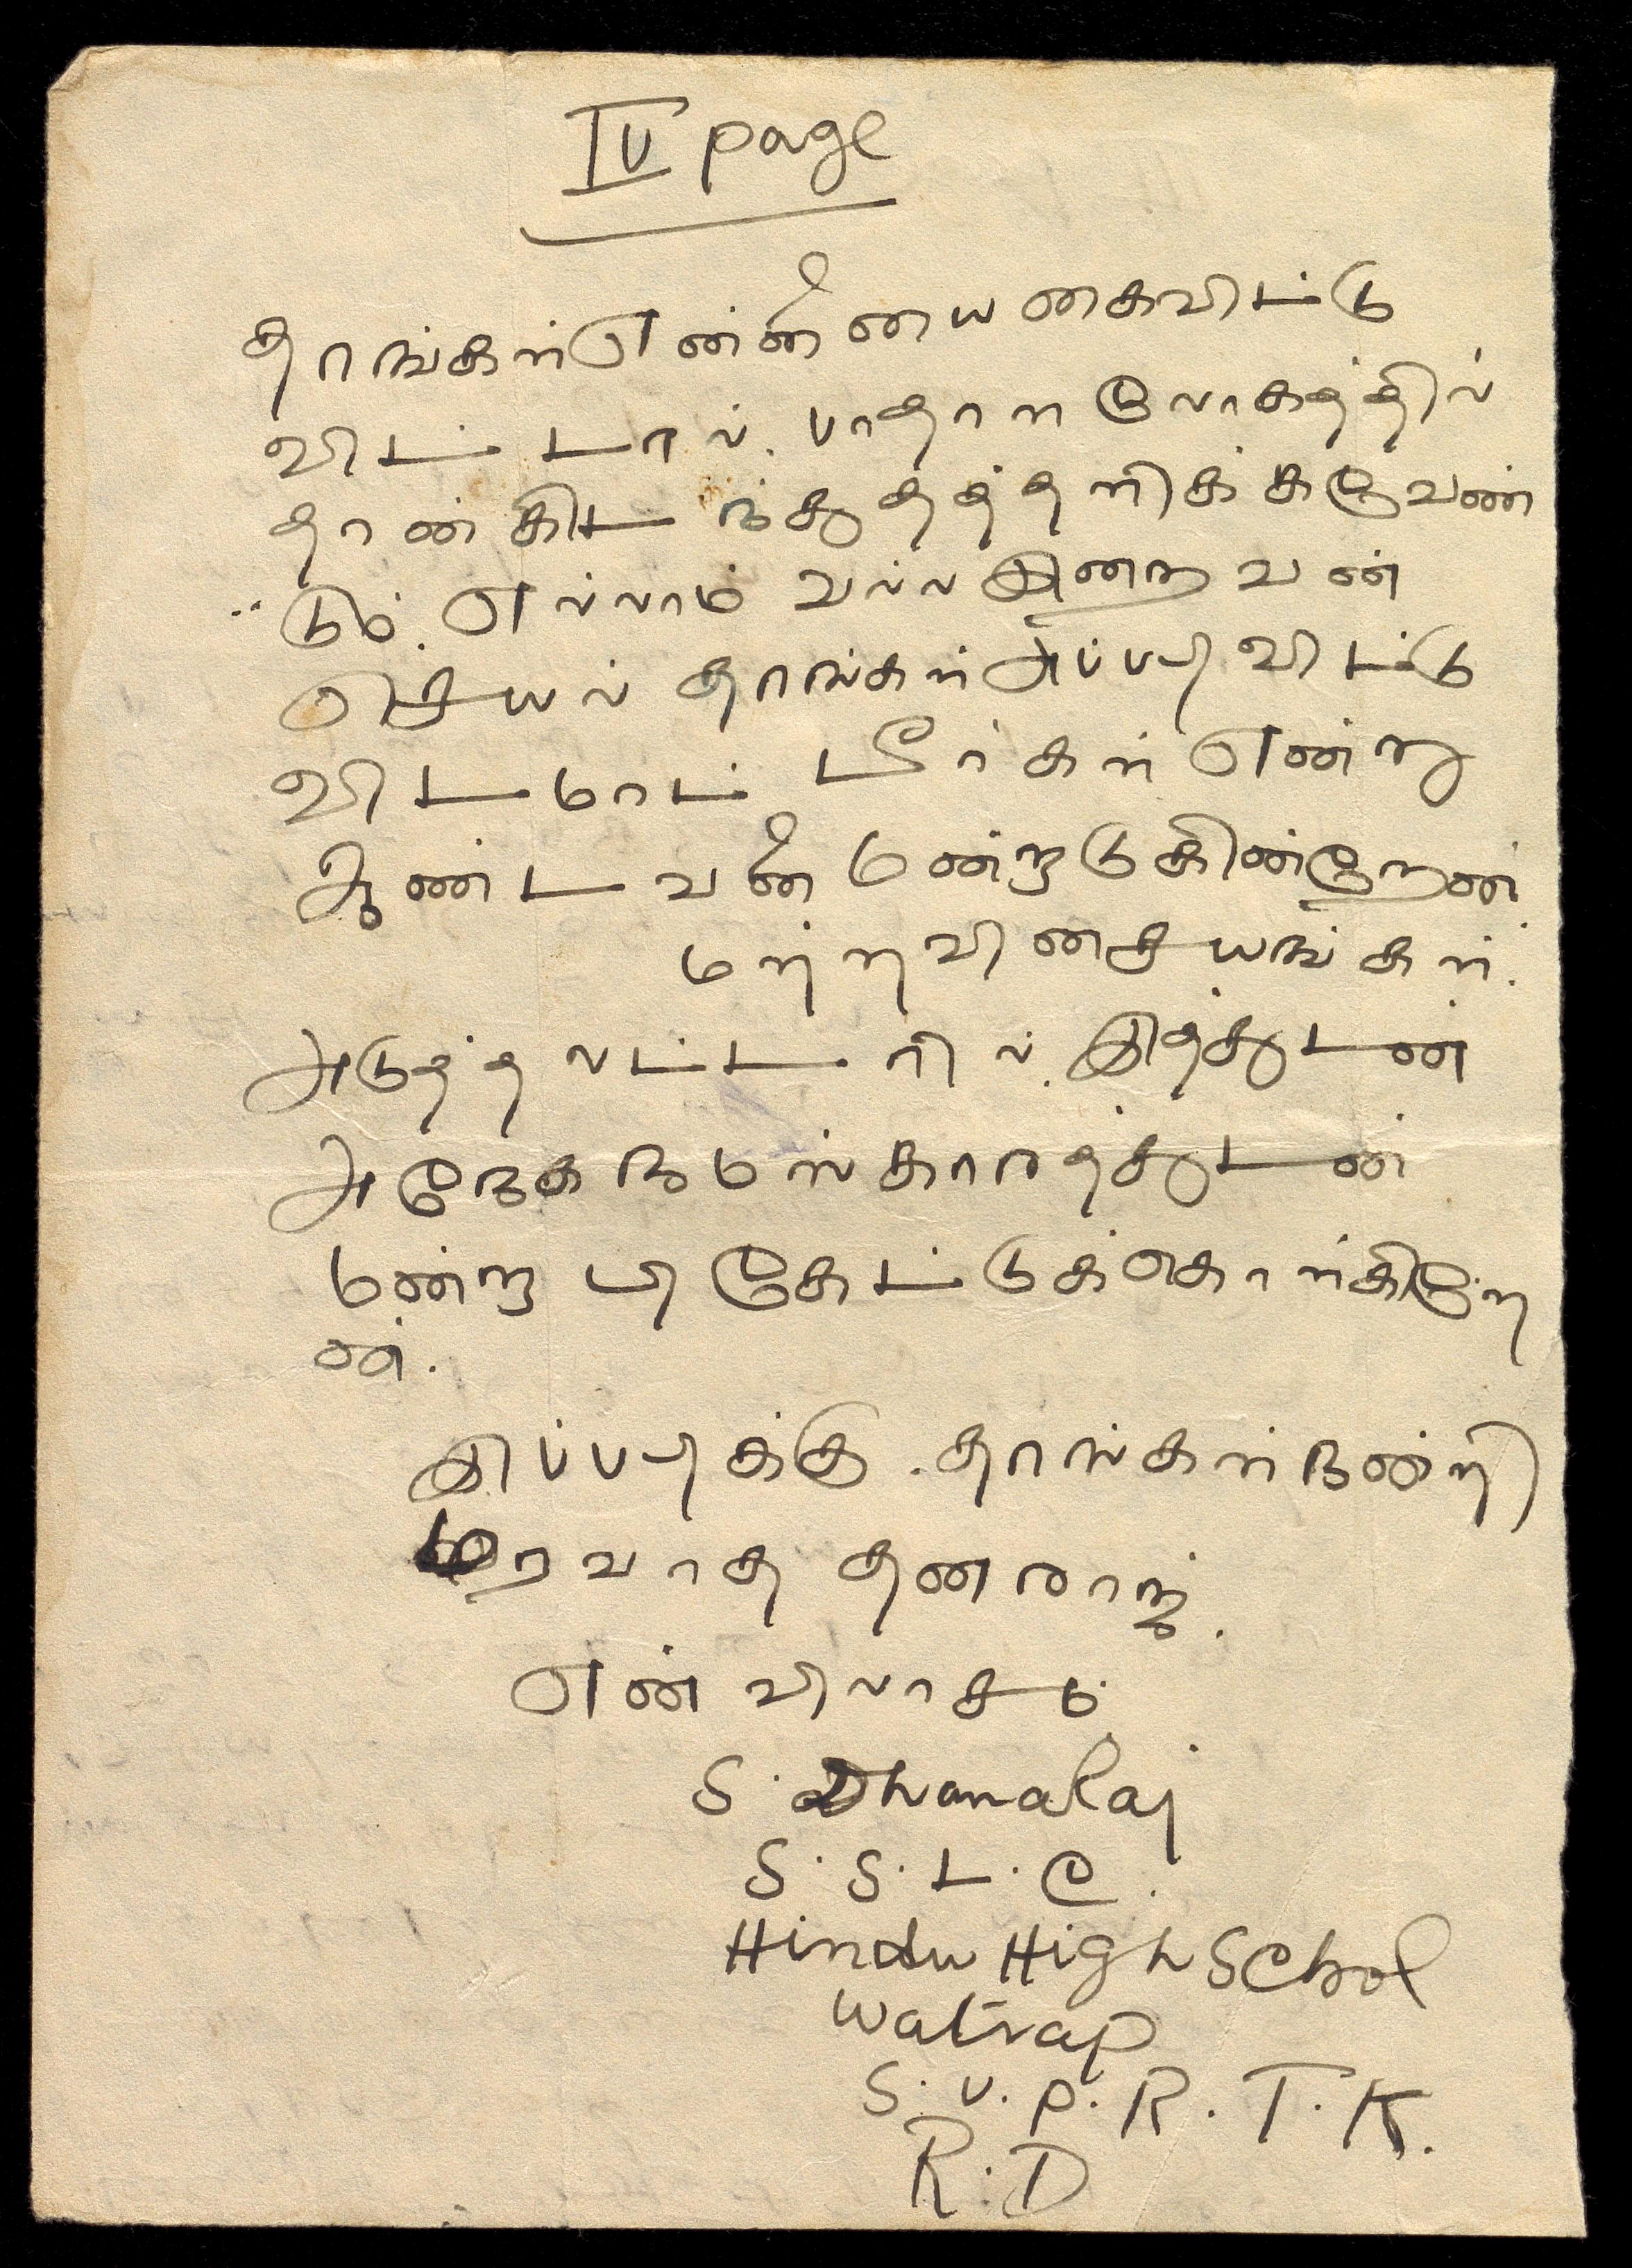 IV page
தாங்கள் என்னைய கைவிட்டு
விட்டால். பாதாள லோகத்தில்
தான் கிடந்து தத்தளிக்க வேண்
டும். எல்லாம் வல்ல இறைவன்
செயல் தாங்கள் அப்படி விட்டு
விடமாட்டீர்கள் என்று
ஆண்டவனை மன்றாடுகின்றேன்.
மற்ற விசையங்கள்.
அடுத்த லட்டரில். இத்துடன்
அநேக நமஸ்காரத்துடன்
மன்றாடி கேட்டுக்கொள்கிறே
ன்.
இப்படிக்கு. தாங்கள் நன்றி
மறவாத தனராஜ்.
என் விலாசம்
S. Dhanaraj
S. S. L. C.
Hindu High Schol
Watrap
S. V. P. R. T. K.
R. D